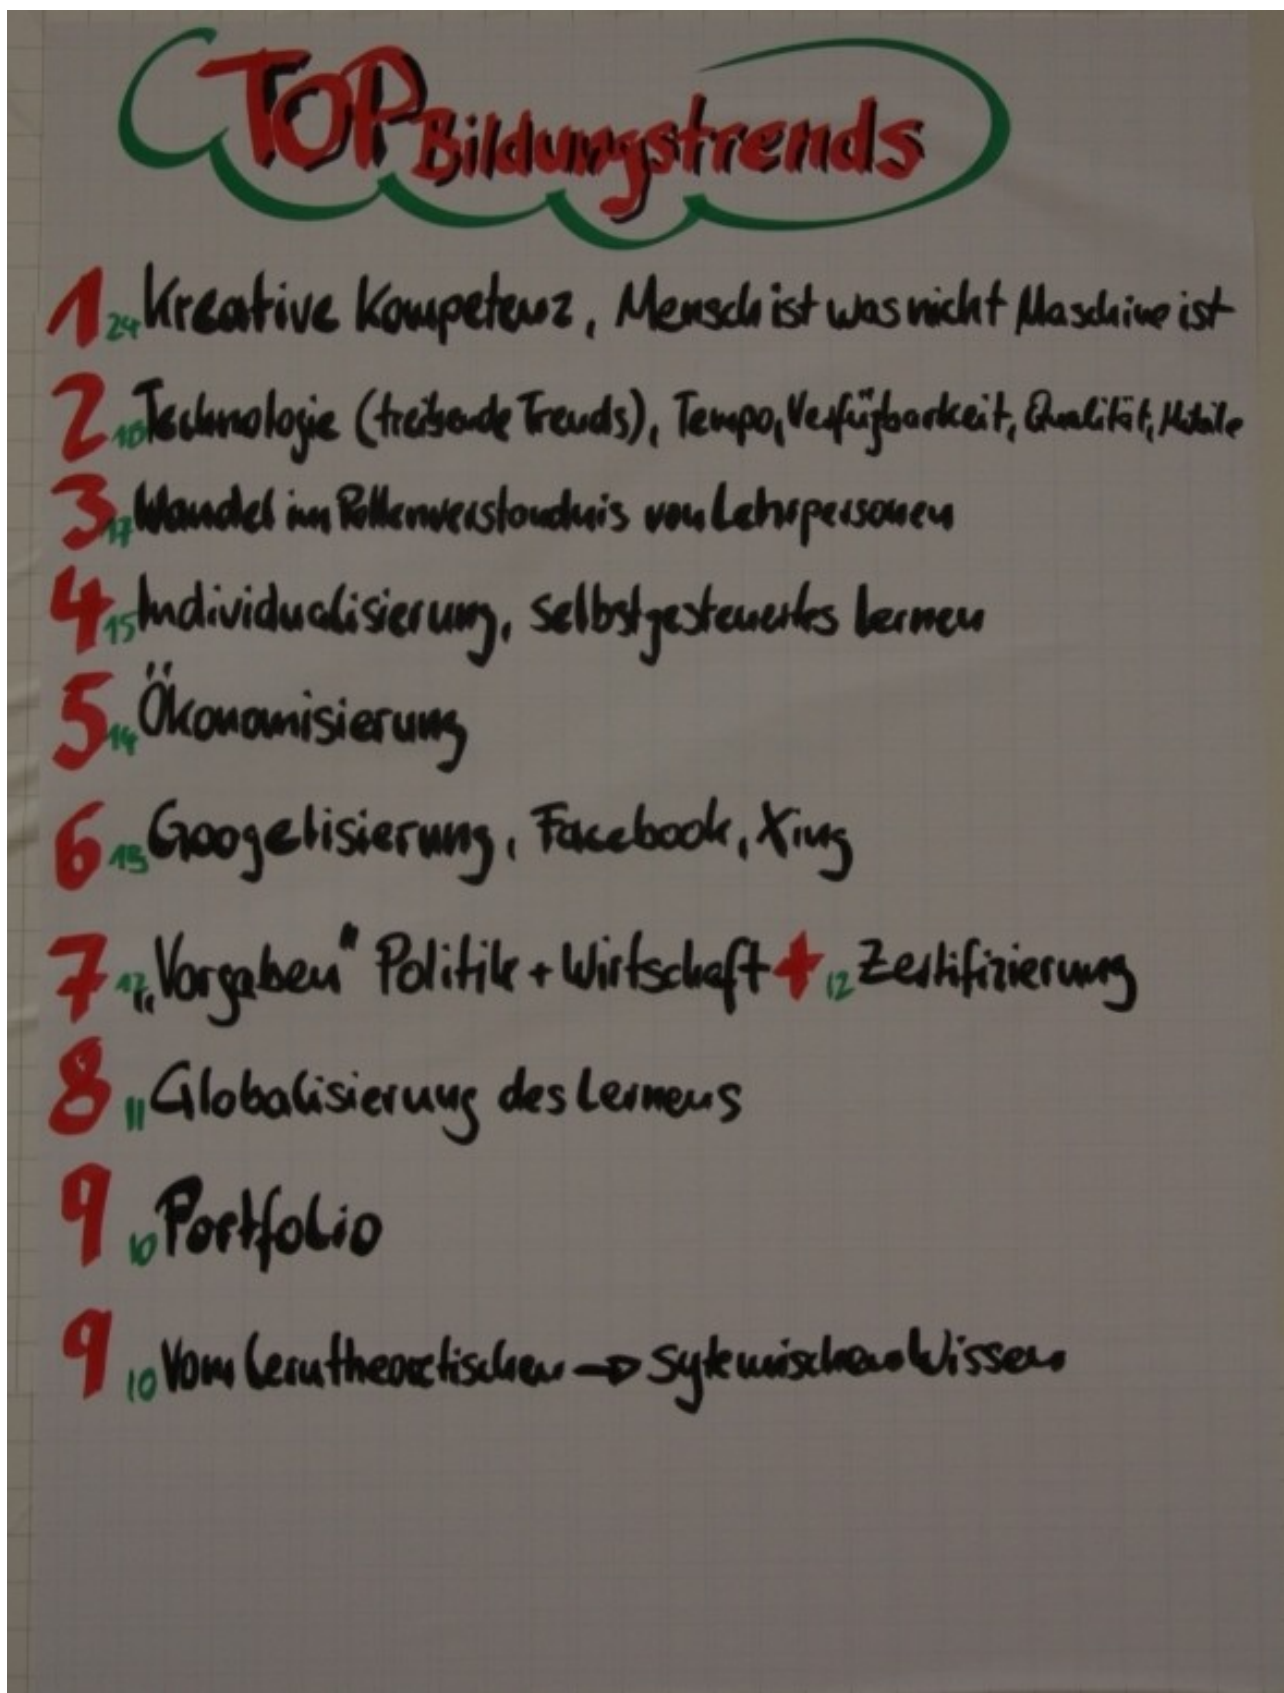 TOP Bildungstrends
1 24 Kreative Kompetenz, Mensch ist was nicht Maschine ist
2 18 Technologie (treibende Trends), Tempo, Verfügbarkeit, Qualität, Mobile
3 17 Wandel im Rollenverständnis von Lehrpersonen
4 15 Individualisierung, selbstgesteuertes Lernen
5 14 Ökonomisierung
6 13 Googelisierung, Facebook, Xing
7 12 „Vorgaben" Politik + Wirtschaft + 12 Zertifizierung
8 11 Globalisierung des Lernens
9 10 Portfolio
9 10 Vom lerntheoretischen → sytemischen Wissen